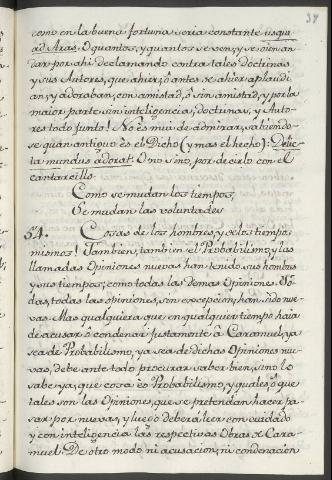 38
como en la buena fortuna seria constante usque
ad Aras. O quantos, y quantos se ven, y se oien an-
dar por ahi declamando contra tales doctrinas
y sus Autores, que ahier, ò antes de ahier aplaudi-
an, y adoraban, con amistad, ò sin amistad, y por la
maior parte sin inteligencia, doctrinas, y Auto-
res todo junto! No es mui de admirar, sabiendo-
se quan antiguo es el Dicho (y mas el hecho): Delic-
ta mundus adorat. O no sino, por decirlo con el
cantarcillo
Como se mudan los tiempos,
Se mudan las voluntades
54. Cosas de los hombres, y de los tiempos
mismos! Tambien, tambien el Probabilismo, y las
llamadas Opiniones nuevas han tenido sus hombres
y sus tiempos, como todas las demas Opiniones. To-
das, todas las opiniones, sin excepcion, han sido nue-
vas. Mas qualquiera que en qualquier tiempo haia
de acusar, ò condenar justamente à Caramuel, ya
sea de Probabilismo, ya sea de dichas Opiniones nue-
vas, debe ante todo procurar saber bien, si no lo
sabe ya, que cosa es Probabilismo, y quales, ò que
tales son las Opiniones, que se pretenden hacer pa-
sar por nuevas, y luego deberà leer con cuidado
y con inteligencia las respectivas Obras de Cara-
muel. De otro modo ni acusacion, ni condenacion